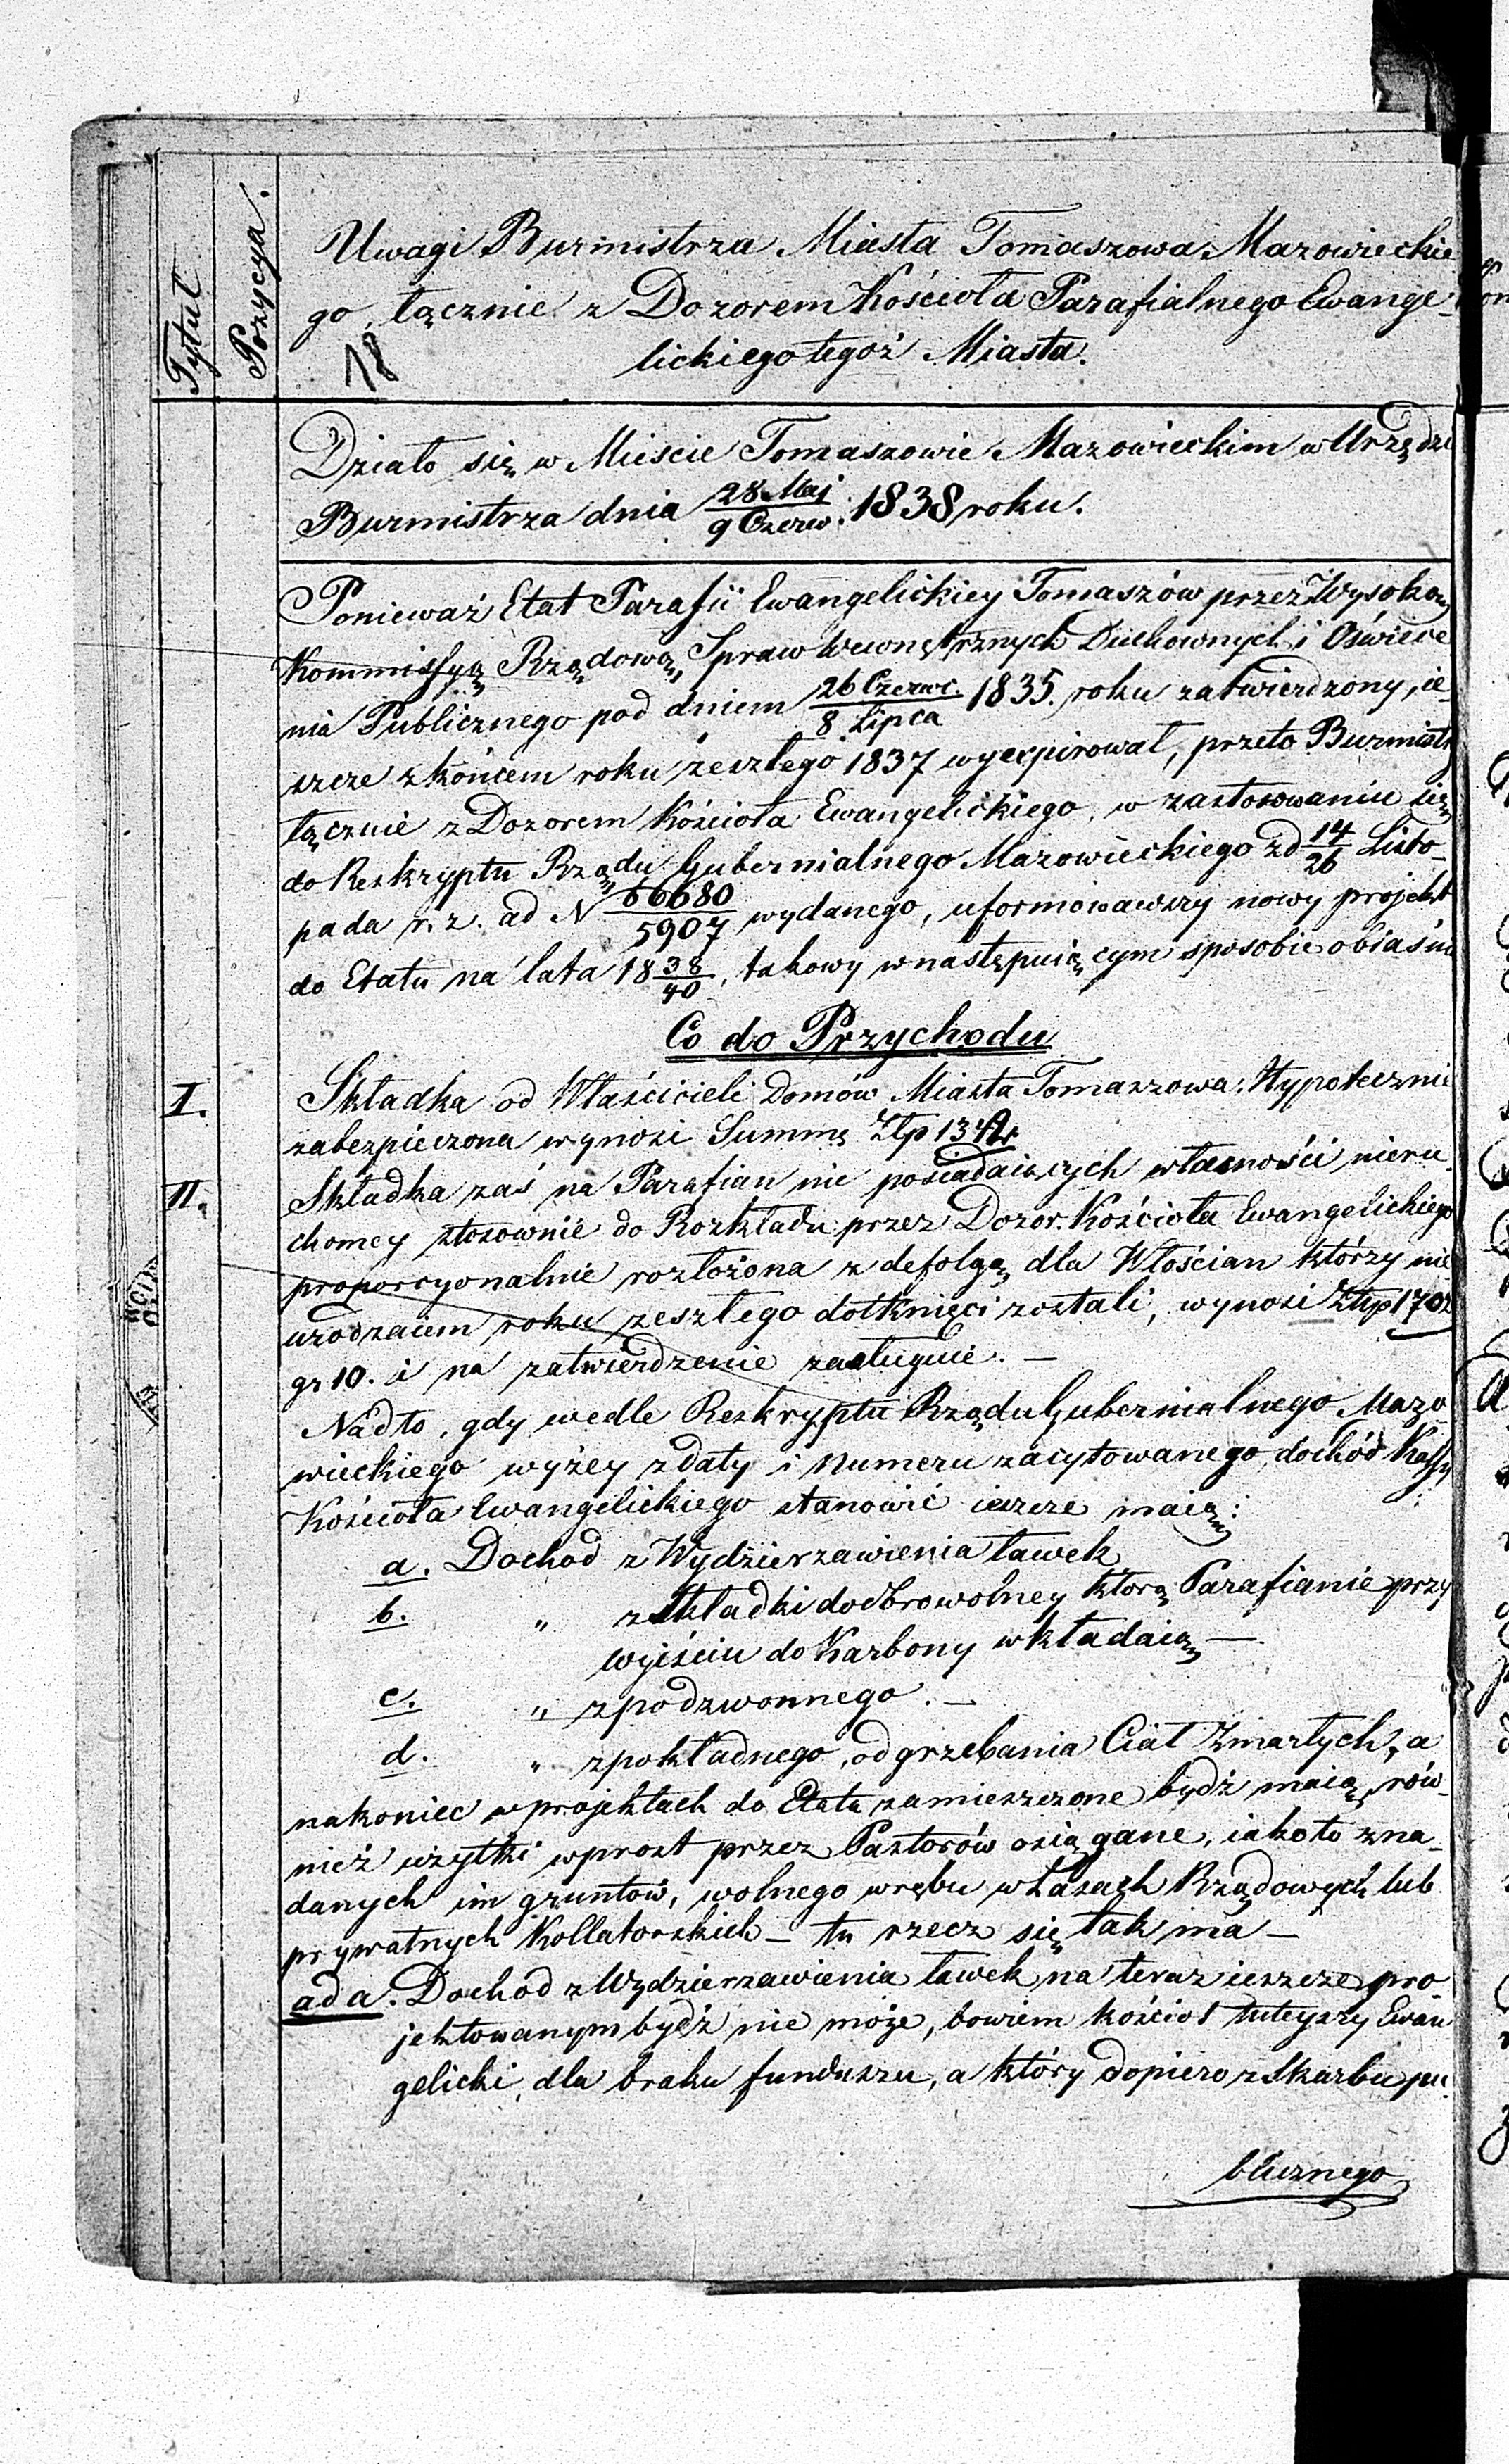 Tytuł
Pozycya.
Uwagi Burmistrza Miasta Tomaszowa Mazowieckie
go, łącznie z Dozorem Kościoła Parafialnego Ewange-
lickiego tegoż Miasta.
18
Działo się w Mieście Tomaszowie Mazowieckim w Urzędzi
Burmistrza dnia 28 Maj / 9 Czerw. 1838 roku.
Ponieważ Etat Parafii Ewangelickiey Tomaszów przez Wysoką
Kommissyą Rządową Spraw Wewnętrznych Duchownych i Oświece
nia Publicznego pod dniem 26 Czerwc. / 8 Lipca 1835. roku zatwierdzony, ie-
szcze z końcem roku zeszłego 1837 wyexpirował, przeto Burmistr
łącznie z Dozorem Kościoła Ewangelickiego, w zastosowaniu się
do Reskryptu Rządu Gubernialnego Mazowieckiego zd 14/26 Listo-
pada r. z. ad N 66680/5907 wydanego, uformowawszy nowy projekt
do Etatu na lata 18 38/40, takowy w następuiącym sposobie obiaśnia
Co do Przychodu
I. Składka od Właścicieli Domów Miasta Tomaszowa Hypotecznie
zabezpieczona wynosi Summę Złp
II. Składka zaś na Parafian nie posiadaiących własności nieru-
chomey stosownie do Rozkładu przez Dozor. Kościoła Ewangelickiego
proporcyonalnie rozłożona z defolgą dla Włościan którzy nie
urodzaiem roku zeszłego dotknięci zostali, wynosi Złp 1702
gr 10. i na zatwierdzenie zasługuie. —
Nadto, gdy wedle Reskryptu Rządu Gubernialnego Mazo-
wieckiego wyżey z daty i Numeru zacytowanego, dochód Kassy
Kościoła Ewangelickiego stanowić ieszcze maią:
a. Dochod z Wydzierzawienia ławek
b. " z Składki dobrowolney którą Parafianie przy
wyiściu do Karbony wkładaią —
c. " z podzwonnego. —
d. " z pokładnego, od grzebania Ciał Zmarłych, a
nakoniec w projektach do Etatu zamieszczone bydź maią, rów-
nież użytki wprost przez Pastorów osiągane, iakoto z na-
danych im gruntów, wolnego wrębu w Lasach Rządowych lub
prywatnych Kollatorskich — tu rzecz się tak ma —
ad a. Dochod z Wydzierzawienia ławek na teraz ieszcze pro-
jektowanym bydź nie może, bowiem kościoł tuteyszy Ewan
gelicki, dla braku funduszu, a który dopiero z Skarbu pu-
blicznego